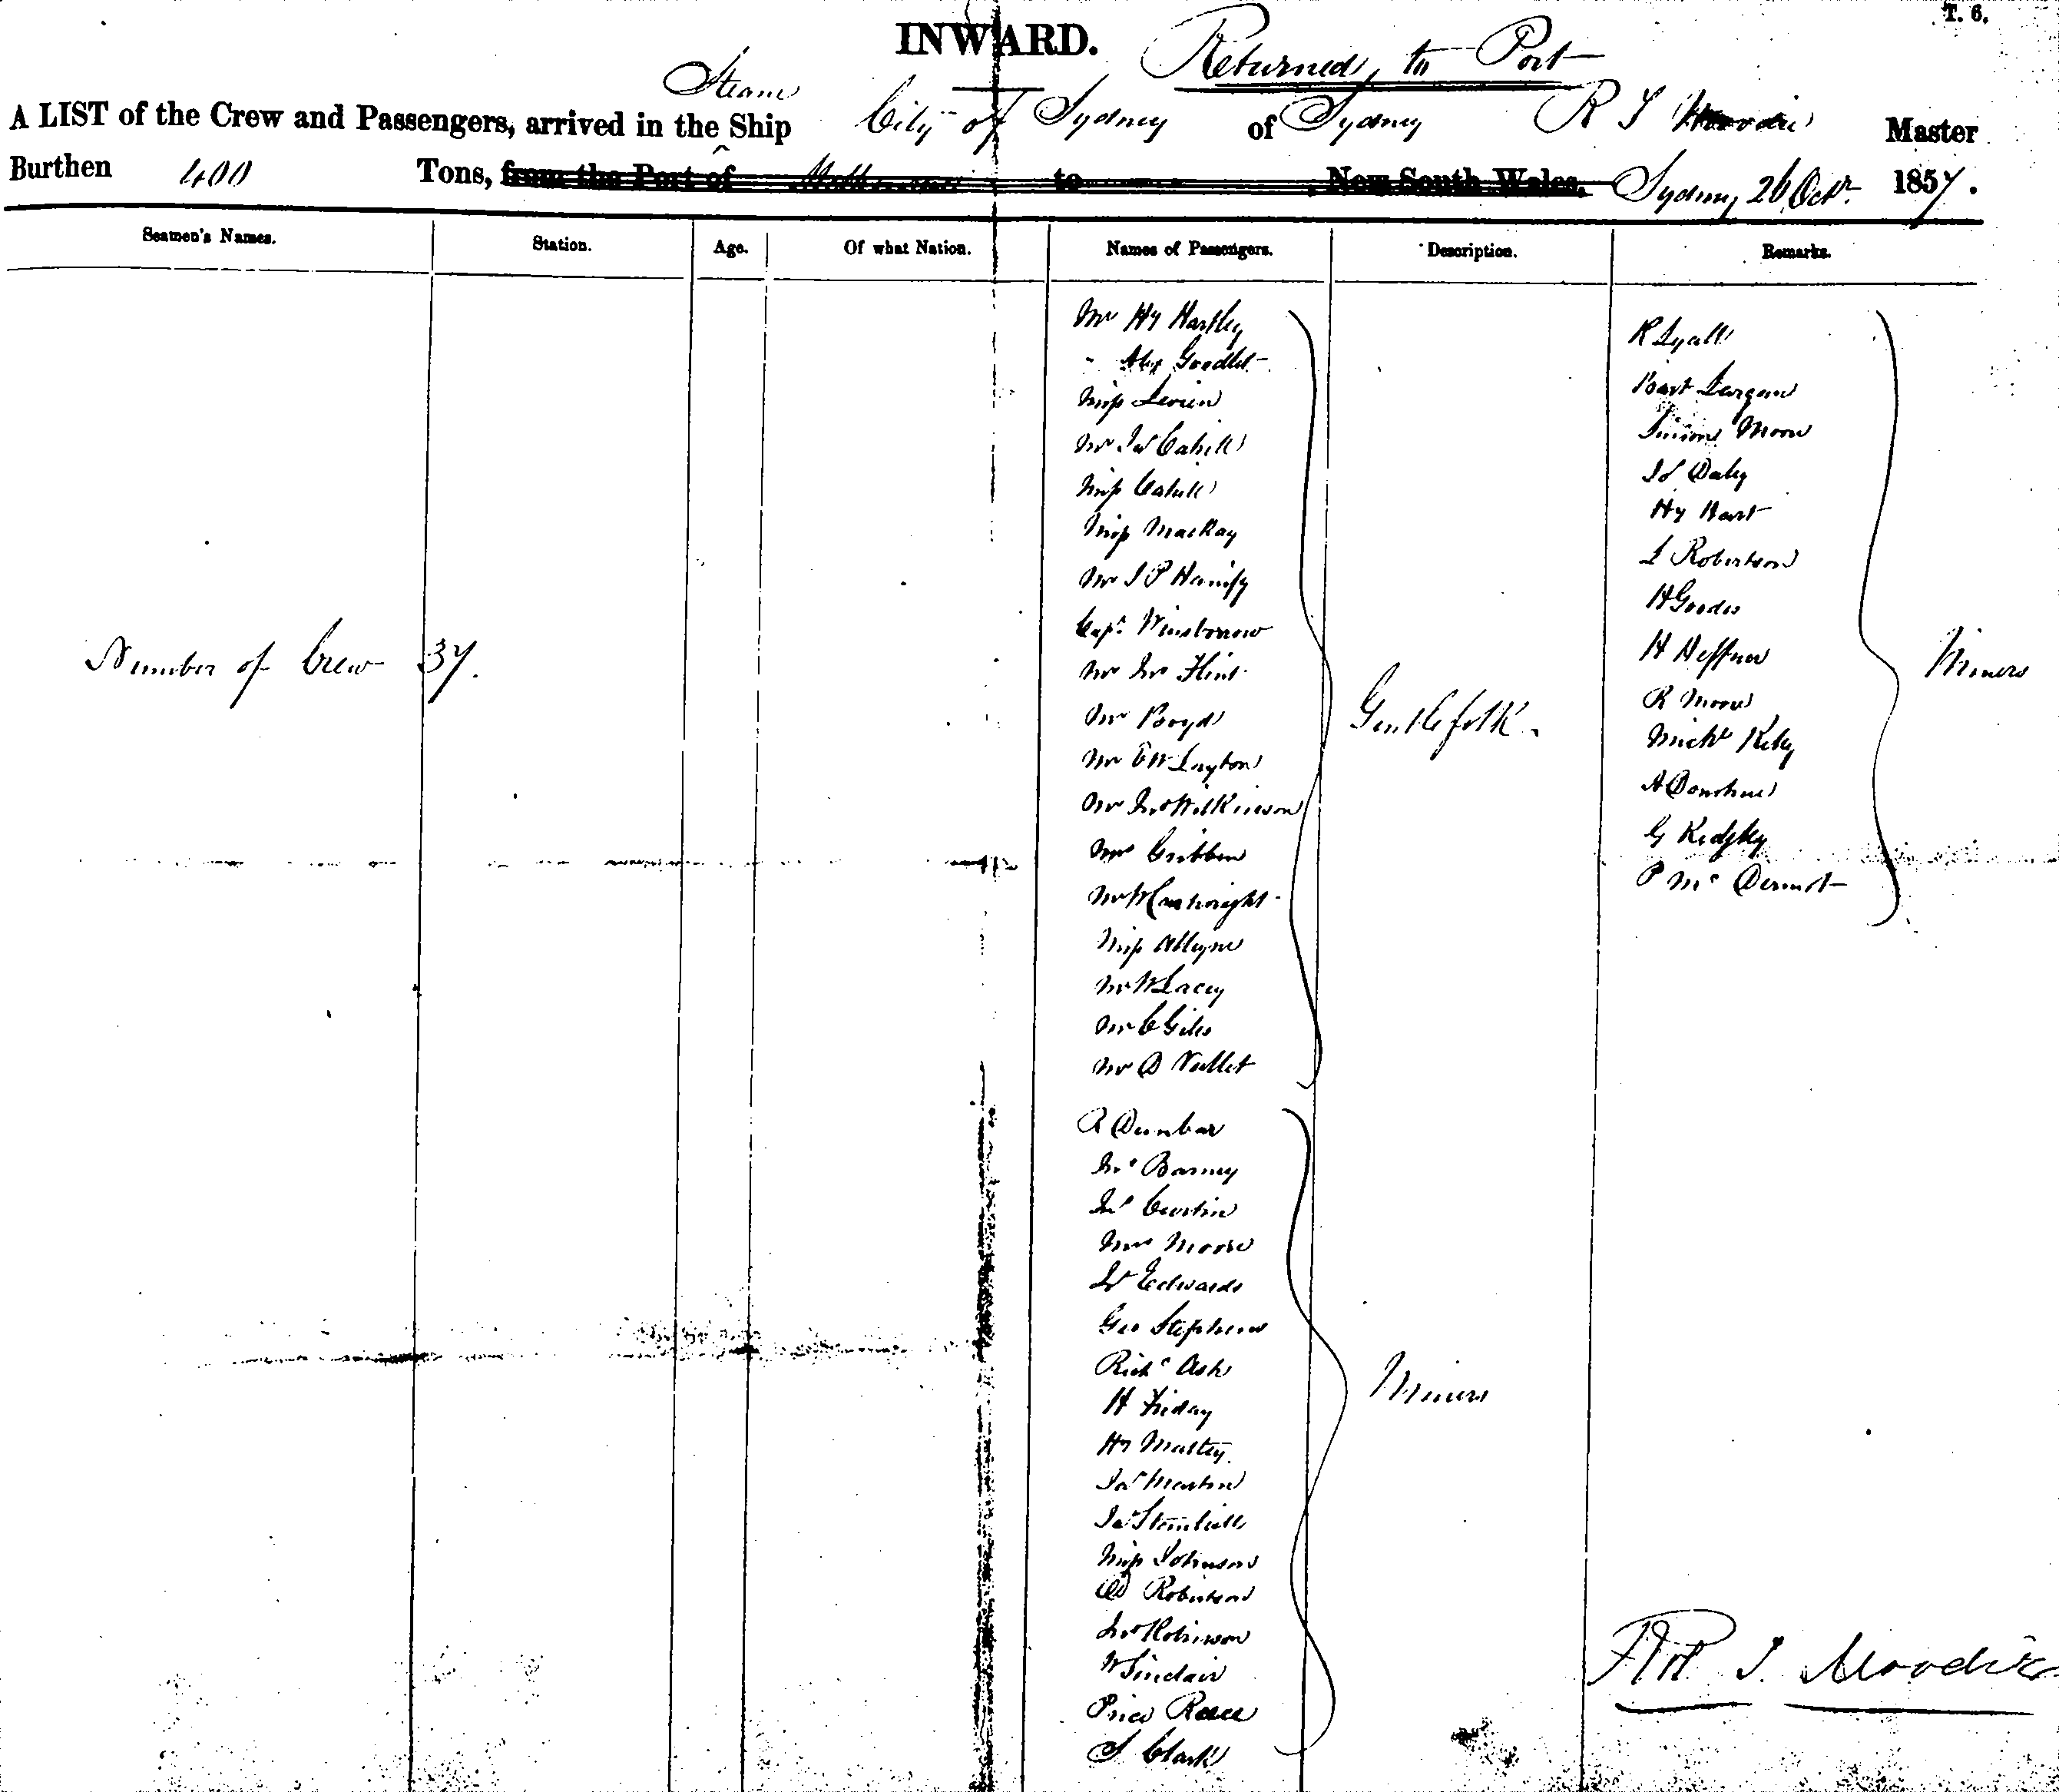 T. 6.
INWARD. Returned to Port
Steam
A LIST of the Crew and Passengers, arrived in the Ship City of Sydney of Sydney R T Moodie Master
Burthen 400 Tons, from the Port of Melbourne to New South Wales, Sydney, 26 Octr. 1857.
Seamen's Names. Station. Age. Of what Nation. Names of Passengers. Description. Remarks.
Number of Crew 37.
Mr Hy Hartley
" Alex Goodlet
Miss Levien
Mr Jas Cahill
Miss Cahill
Miss MacKay
Mr J P Hanify
Capt. Winsborrow
Mr Jno Flint
Mr Boyd
Mr E W Layton
Mr Jno Wilkinson
Mrs Gribben
Mr W Cartwright
Miss Alleyne
Mr W Lacey
Mr C Giles
Mr D Nullet
Gentlefolk.
R Dunbar
Jno Barney
Jas Curtin
Mrs Moore
Jas Edwards
Geo Stephens
Richd Ash
H Friday
Hy
Jas Martin
Jas
Miss Johnson
D Robertson
Jno Robinson
W Sinclair
Price Reece
S Clark
Miners
R Lyall
Bart Largan
Simon Moon
Js Daley
Hy Hart
L Robertson
H Goodes
H Heffner
R Moore
Michl Kiley
A Donohue
G Ridgley
P McDermot
Miners
Robt T. Moodie